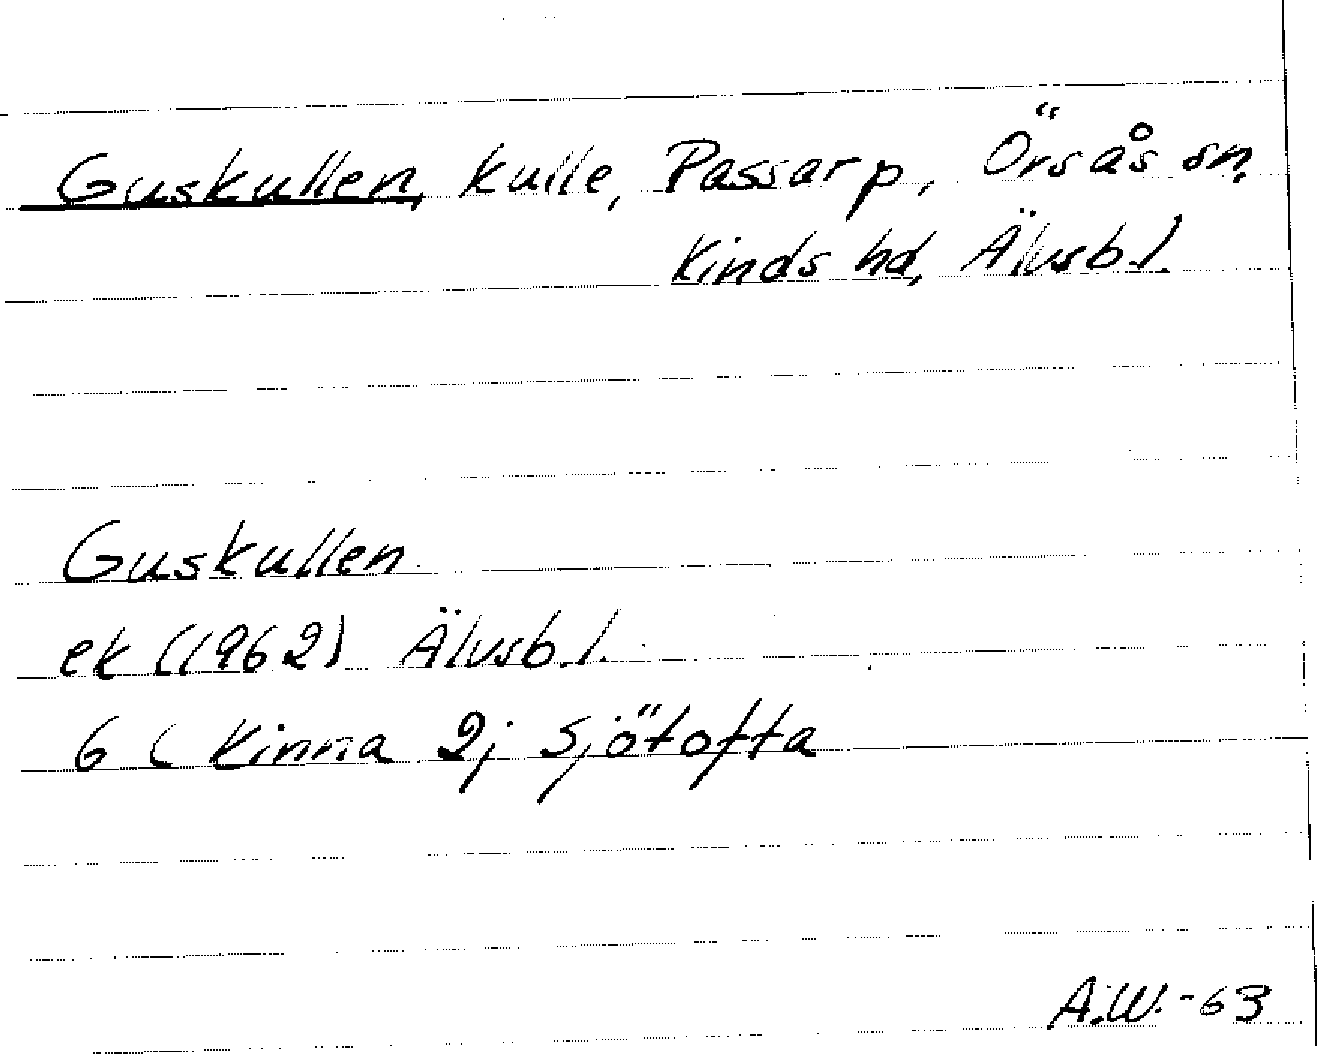 Guskullen, kulle, Passarp, Örsås sn.
Kinds hd, Älvsb.l.
Guskullen
ek (1962) Älvsb.l.
6 C Kinna 2j Sjötofta
A.W.-63